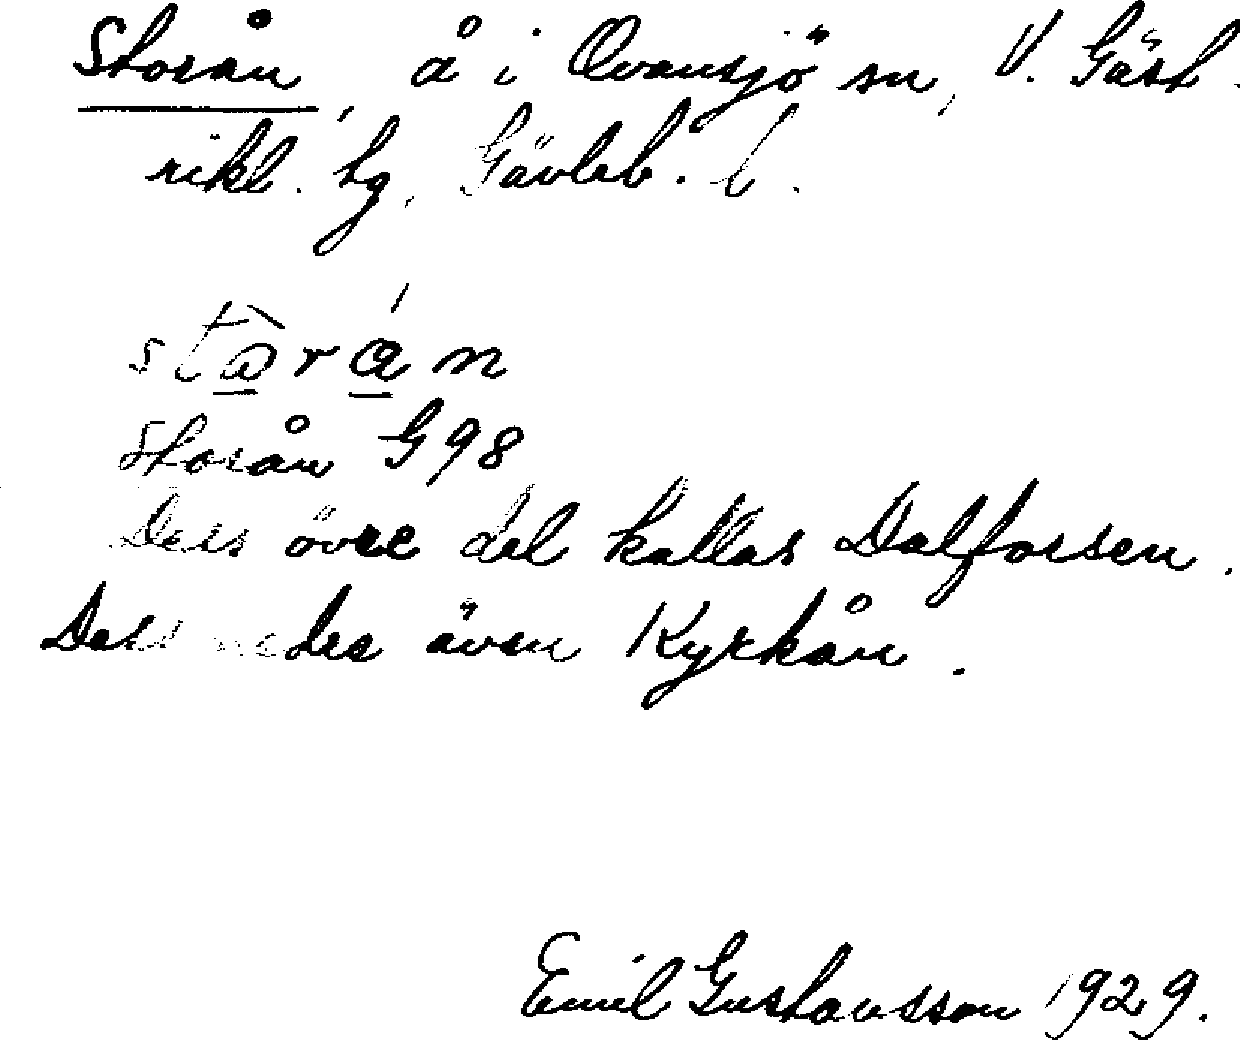 Storån, å i Ovansjö sn, V. Gäst-
rikl. tg, Gävleb. l.
Storån G 98
Dess övre del kallas Dalforsen.
Dess nedre även Kyrkån.
Emil Gustavsson 1929.